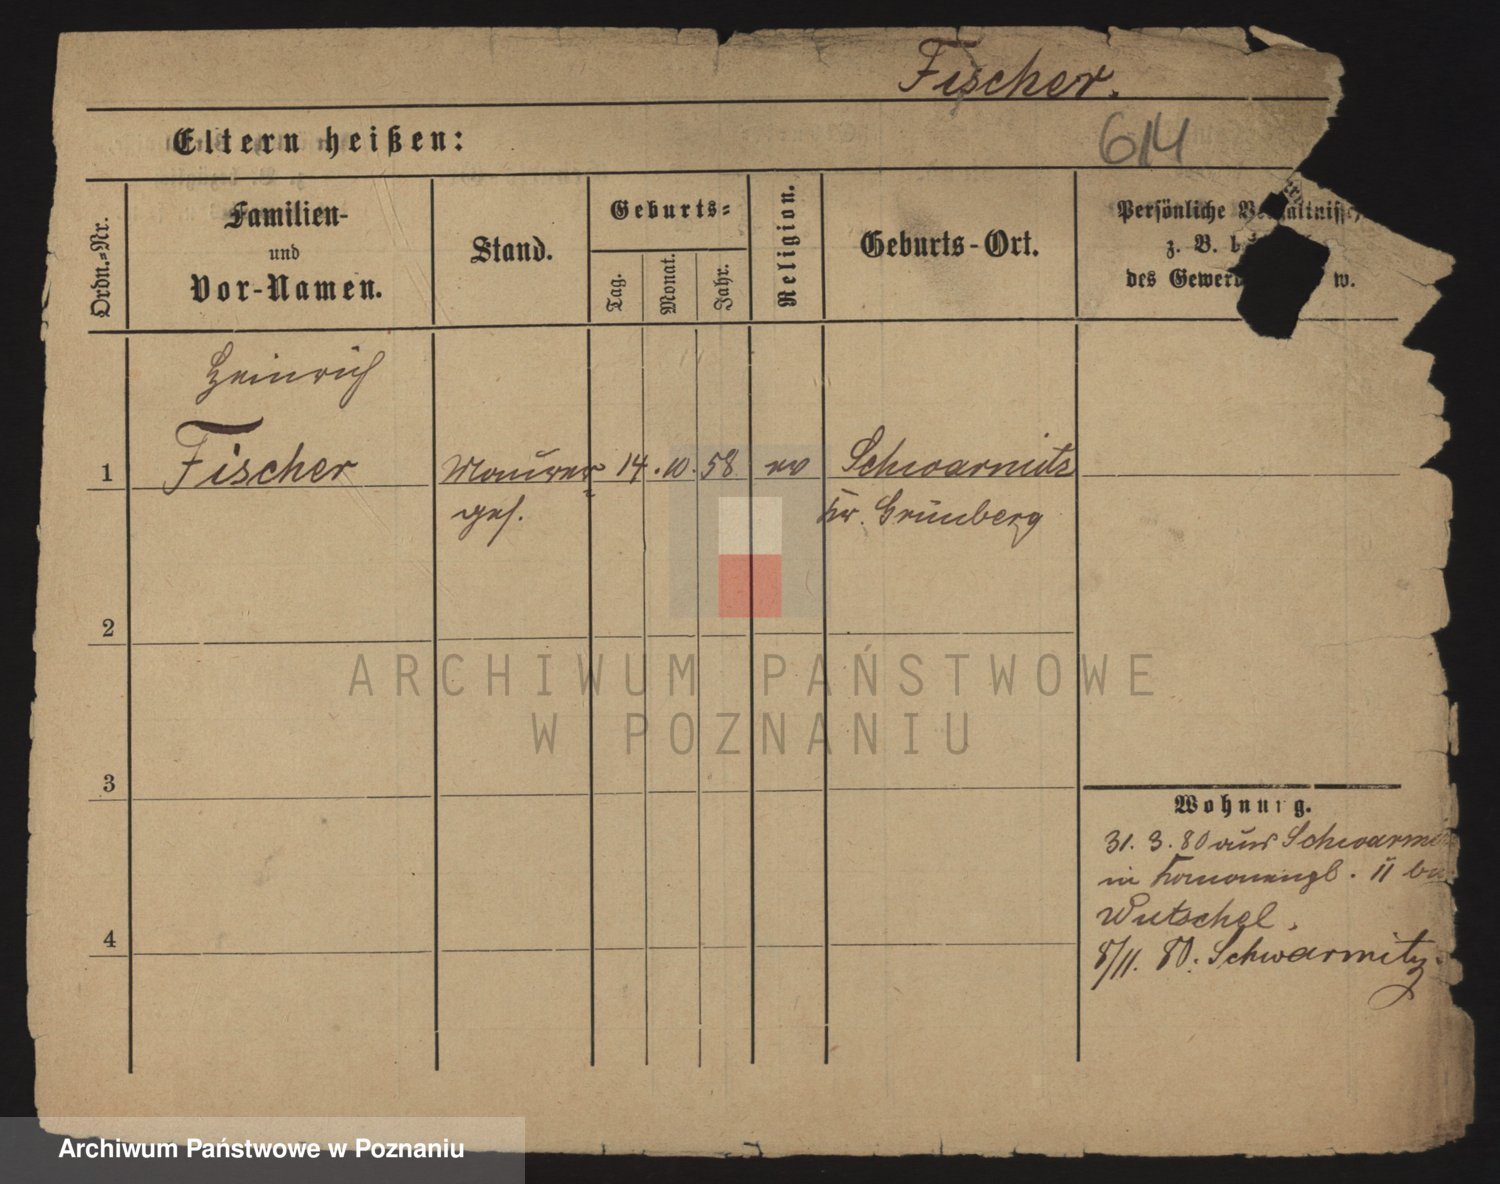 Fischer.
614
Eltern heißen:
Ordn.-Nr.
Familien-
und
Vor-Namen.
Stand.
Geburts-
Tag.
Monat.
Jahr.
Religion.
Geburts-Ort.
Persönliche
z. B.
des
w.
Heinrich
1 Fischer Maurer 14. 10. 58 ev Schwarmitz
ges. Kr. Grünberg
2
3
4
Wohnung.
31. 3. 80 aus
in II
Wutschel.
8/11. 80. Schwarmitz.
ARCHIWUM PAŃSTWOWE
W POZNANIU
Archiwum Państwowe w Poznaniu